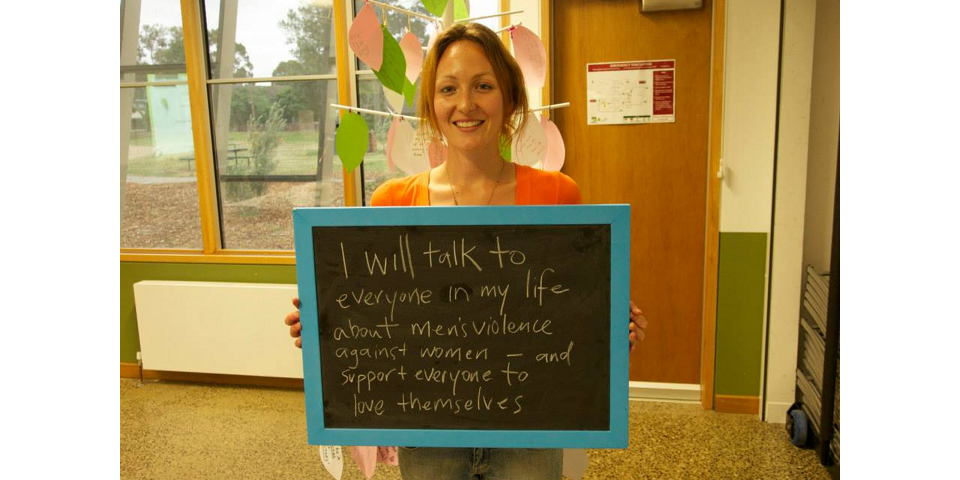 I will talk to
everyone in my life
about men's violence
against women – and
support everyone to
love themselves
EMERGENCY EVACUATION